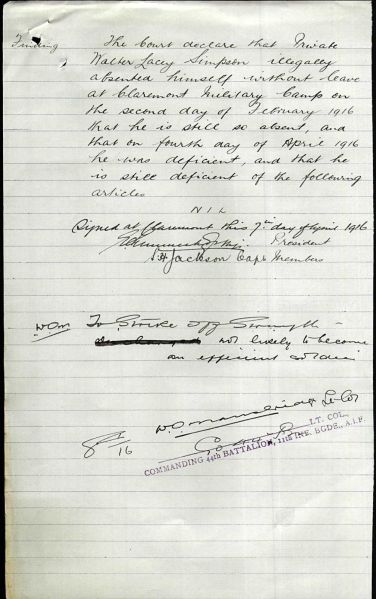 Finding The Court declare that Private
Walter Lacey Simpson illegally
absented himself without leave
at Claremont Military Camp on
the second day of February 1916
that he is still so absent, and
that on fourth day of April 1916
he was deficient, and that he
is still deficient of the following
articles
NIL
Signed at Claremont this 7th day of April 1916
President
Jackson Capt Members
To Strike off Strength -
not likely to become
an efficient soldier
Lt Col
LT. COL.,
COMMANDING 44th BATTALION, 11th INF. BGDE., A.I.F.
16